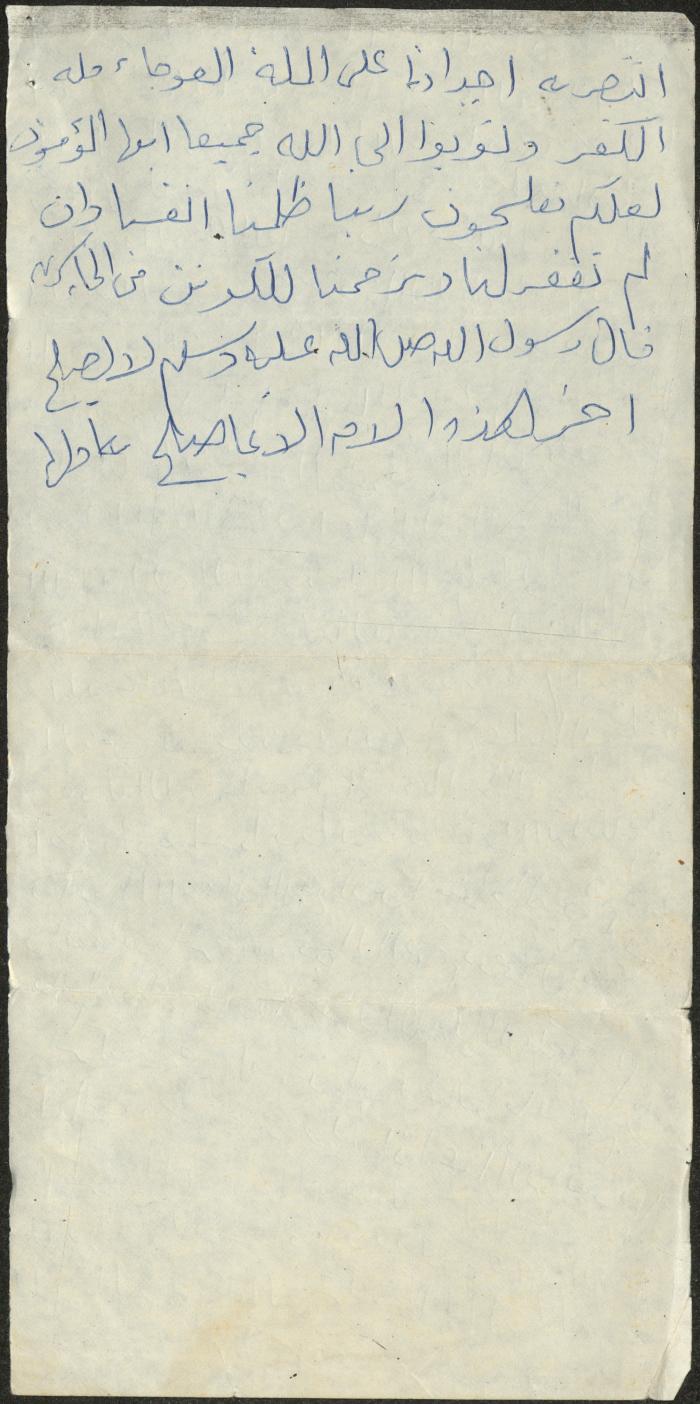 انتصر به اجدادنا على الملة العوجاء مله
الكفر وتوبوا الى الله جميعا ايها المؤمنون
لعلكم تفلحون ربنا ظلمنا انفسنا وان
لم تغفر لنا وترحمنا لنكونن من الخاسرين
قال رسول الله صلى الله عليه وسلم لا يصلح
اخر هذه الامه الا بما صلح به اولها